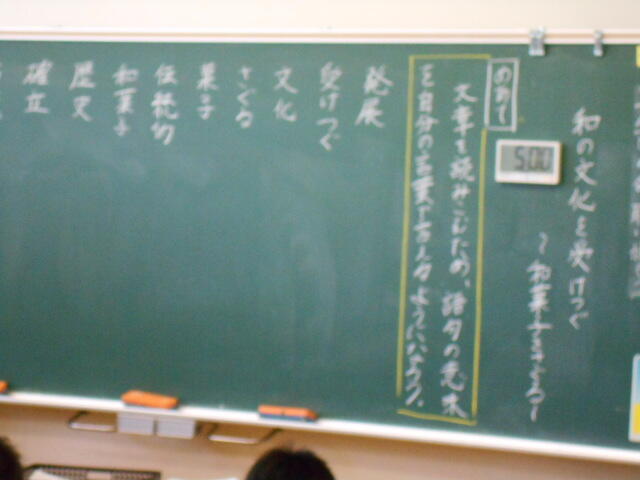 和の文化を受けつぐ
～和菓子をさぐる～
5:00
めあて
文章を読みこむため、語句の意味
を自分の言葉で言えるようになろう。
発展
受けつぐ
文化
さぐる
菓子
伝統的
和菓子
歴史
確立